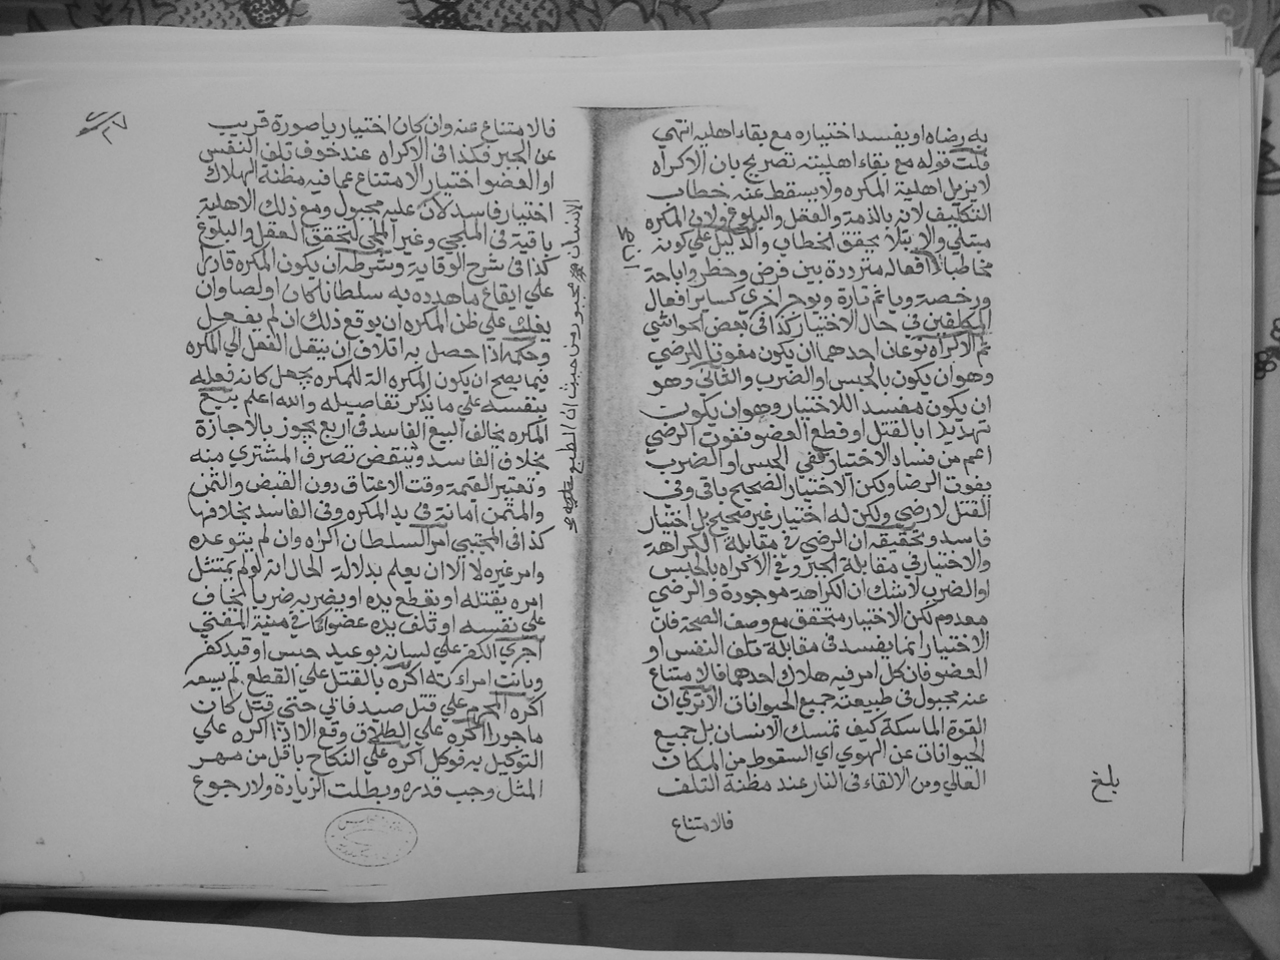 به رضاه او يفسد اختياره مع بقاء اهليه انتهي
قلت قوله مع بقاء اهليته تصريح بان الاكراه
لا يزيل اهلية المكره ولا يسقط عنه خطاب
التكليف لانه بالذمة والعقل والبلوغ ولان المكره
مبتلي والابتلا يحقق الخطاب والدليل علي كونه
مخاطبا ان افعاله مترددة بين فرض وحظر واباحة
ورخصة وياثم تارة ويوجر اخري كساير افعال
المكلفين في حال الاختيار كذا في بعض الحواشي
ثم الاكراه نوعان احدهما ان يكون مفوتا للرضي
وهو ان يكون بالحبس او الضرب والثاني وهو
ان يكون مفسد اللاختيار وهو ان يكون
تهديدا بالقتل او قطع العضو ففوت الرضي
اعم من فساد الاختيار ففي الحبس او الضرب
يفوت الرضا ولكن الاختيار الصحيح باقي وفي
القتل لا رضي ولكن له اختيار غير صحيح بل اختيار
فاسد وتحقيقه ان الرضي في مقابلة الكراهة
والاختيار في مقابلة الجبر وفي الاكراه بالحبس
او الضرب لا شك ان الكراهة موجودة والرضي
معدوم لكن الاختيار متحقق مع وصف الصحة فان
الاختيار انما يفسد في مقابلة تلف النفس او
العضو فان كل امر فيه هلاك احدهما فالامتناع
عنه مجبول في طبيعته جميع الحيوانات الا تري ان
القوة الماسكة كيف تمسك الانسان بل جميع
الحيوانات عن الهوي اي السقوط من المكان
العالي ومن الالقاء في النار عند مظنة التلف
فالامتناع
بلغ
٢٧
فالامتناع عنه وان كان اختياريا صورة قريب
عن الجبر فكذا في الاكراه عند خوف تلف النفس
او العضو اختيار الامتناع عما فيه مظنة الهلاك
اختيار فاسد لانه عليه مجبول ومع ذلك الاهلية
باقية في الملجي وغير الملجي لتحقق العقل والبلوغ
كذا في شرح الوقاية وشرطه ان يكون المكره قادرا
علي ايقاع ما هدده به سلطانا كان او لصا وان
يغلب علي ظن المكره ان يوقع ذلك ان لم يفعل
وحكمه اذا حصل به اتلاف ان ينتقل الفعل الي المكره
فيما يصح ان يكون المكره الة للمكره يجعل كانه فعله
بنفسه علي ما نذكر تفاصيله والله اعلم بيع
المكره يخالف البيع الفاسد في اربع يجوز بالاجازة
بخلاف الفاسد وينتقض تصرف المشتري منه
وتعتبر القيمة وقت الاعتاق دون القبض والثمن
والمثمن امانة في يد المكره وفي الفاسد بخلافها
كذا في المجتبي امر السلطان اكراه وان لم يتوعده
وامر غيره لا الا ان يعلم بدلالة الحال انه لو لم يمتثل
امره يقتله او يقطع يده او يضربه ضربا يخاف
علي نفسه او تلف يده عضو كما في منية المفتي
اجري الكفر علي لسانه بوعيد حبس او قيد كفر
وبانت امراءته اكره بالقتل علي القطع لم يسعه
اكره المحرم علي قتل صيد فابي حتي قتل كان
ماجورا اكره علي الطلاق وقع الا اذا اكره علي
التوكيل به فوكل اكره علي النكاح باقل من مهر
المثل وجب قدره وبطلت الزيادة ولا رجوع
الانسان مجبور من حيث ان الطبع